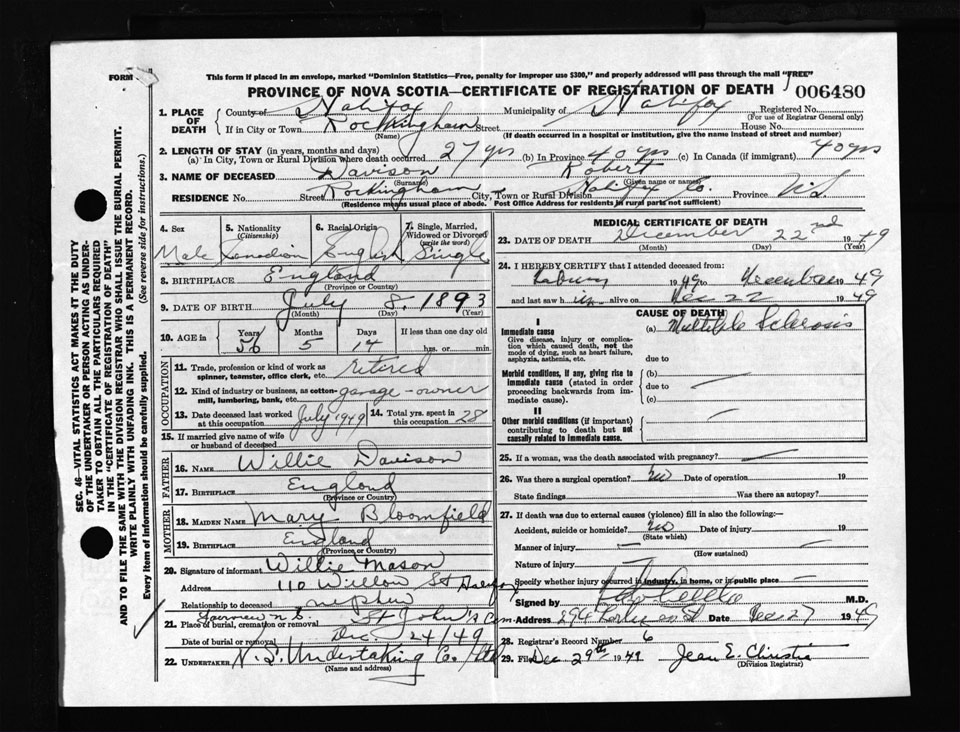 FORM
This form if placed in an envelope, marked "Dominion Statistics—Free, penalty for improper use $300," and properly addressed will pass through the mail "FREE"
PROVINCE OF NOVA SCOTIA—CERTIFICATE OF REGISTRATION OF DEATH 006480
1. PLACE OF DEATH County of Halifax Municipality of Halifax Registered No.
(For use of Registrar General only)
If in City or Town Rockingham Street House No.
(Name) (If death occurred in a hospital or institution, give the name instead of street and number)
2. LENGTH OF STAY (in years, months and days)
(a) In City, Town or Rural Division where death occurred 27 yrs (b) In Province 40 yrs (c) In Canada (if immigrant) 40 yrs
3. NAME OF DECEASED Davison Robert
(Surname) (Given name or names)
RESIDENCE No. Street Rockingham City, Town or Rural Division Halifax Co. Province N.S.
(Residence means usual place of abode. Post Office Address for residents in rural parts not sufficient)
4. Sex 5. Nationality (Citizenship) 6. Racial Origin 7. Single, Married, Widowed or Divorced (write the word)
Male Canadian English Single
8. BIRTHPLACE England
(Province or Country)
9. DATE OF BIRTH July 8, 1893
(Month) (Day) (Year)
10. AGE in Years Months Days If less than one day old
56 5 14 hrs. or min.
OCCUPATION
11. Trade, profession or kind of work as spinner, teamster, office clerk, etc. retired
12. Kind of industry or business, as cotton-mill, lumbering, bank, etc. garage-owner
13. Date deceased last worked at this occupation July 1949 14. Total yrs. spent in this occupation 28
15. If married give name of wife or husband of deceased
FATHER
16. NAME Willie Davison
17. BIRTHPLACE England
(Province or Country)
MOTHER
18. MAIDEN NAME Mary Bloomfield
19. BIRTHPLACE England
(Province or Country)
20. Signature of informant Willie Mason
Address 110 Willow St Halifax
Relationship to deceased nephew
Fairview N.S. St John's Cem.
21. Place of burial, cremation or removal
Date of burial or removal Dec. 24/49
22. UNDERTAKER N.S. Undertaking Co. Ltd
(Name and address)
MEDICAL CERTIFICATE OF DEATH
23. DATE OF DEATH December 22nd 1949
(Month) (Day) (Year)
24. I HEREBY CERTIFY that I attended deceased from:
1949 to December 1949
and last saw him alive on Dec 22 1949
CAUSE OF DEATH
I
Immediate cause (a) Multiple Sclerosis
Give disease, injury or complication which caused death, not the mode of dying, such as heart failure, asphyxia, asthenia, etc.
due to
Morbid conditions, if any, giving rise to immediate cause (stated in order proceeding backwards from immediate cause).
(b)
due to
(c)
II
Other morbid conditions (if important) contributing to death but not causally related to immediate cause.
25. If a woman, was the death associated with pregnancy?
26. Was there a surgical operation? No Date of operation 19
State findings Was there an autopsy?
27. If death was due to external causes (violence) fill in also the following:—
Accident, suicide or homicide? No Date of injury 19
(State which)
Manner of injury
(How sustained)
Nature of injury
Specify whether injury occurred in industry, in home, or in public place
Signed by M.D.
Address St Date Dec 27 1949
28. Registrar's Record Number 6
29. Filed Dec 29th 1949 Jean E. Christie
(Division Registrar)
SEC. 46—VITAL STATISTICS ACT MAKES IT THE DUTY
OF THE UNDERTAKER OR PERSON ACTING AS UNDERTAKER
TO OBTAIN ALL THE PARTICULARS REQUIRED
IN THE "CERTIFICATE OF REGISTRATION OF DEATH"
AND TO FILE THE SAME WITH THE DIVISION REGISTRAR WHO SHALL ISSUE THE BURIAL PERMIT.
WRITE PLAINLY WITH UNFADING INK. THIS IS A PERMANENT RECORD.
Every item of Information should be carefully supplied. (See reverse side for instructions.)